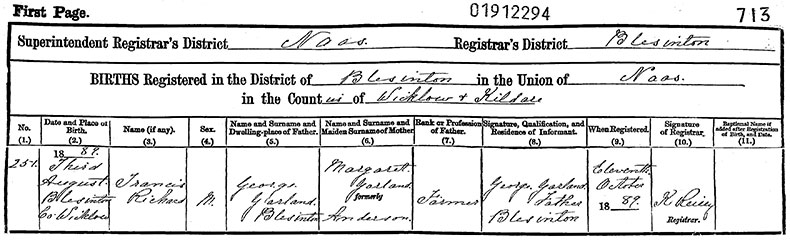 First Page. 01912294 713
Superintendent Registrar's District Naas. Registrar's District Blesinton
BIRTHS Registered in the District of Blesinton in the Union of Naas.
in the Counties of Wicklow & Kildare
No. (1.)
Date and Place of Birth. (2.)
Name (if any). (3.)
Sex. (4.)
Name and Surname and Dwelling-place of Father. (5.)
Name and Surname and Maiden Surname of Mother (6.)
Rank or Profession of Father. (7.)
Signature, Qualification, and Residence of Informant. (8.)
When Registered. (9.)
Signature of Registrar. (10.)
Baptismal Name if added after Registration of Birth, and Date. (11.)
251.
1889.
Third
August
Blesinton
Co Wicklow
Francis
Richard
M.
George
Garland
Blesinton
Margaret
Garland
formerly
Anderson.
Farmer
George Garland
Father
Blesinton
Eleventh
October
1889.
K Reilly
Registrar.